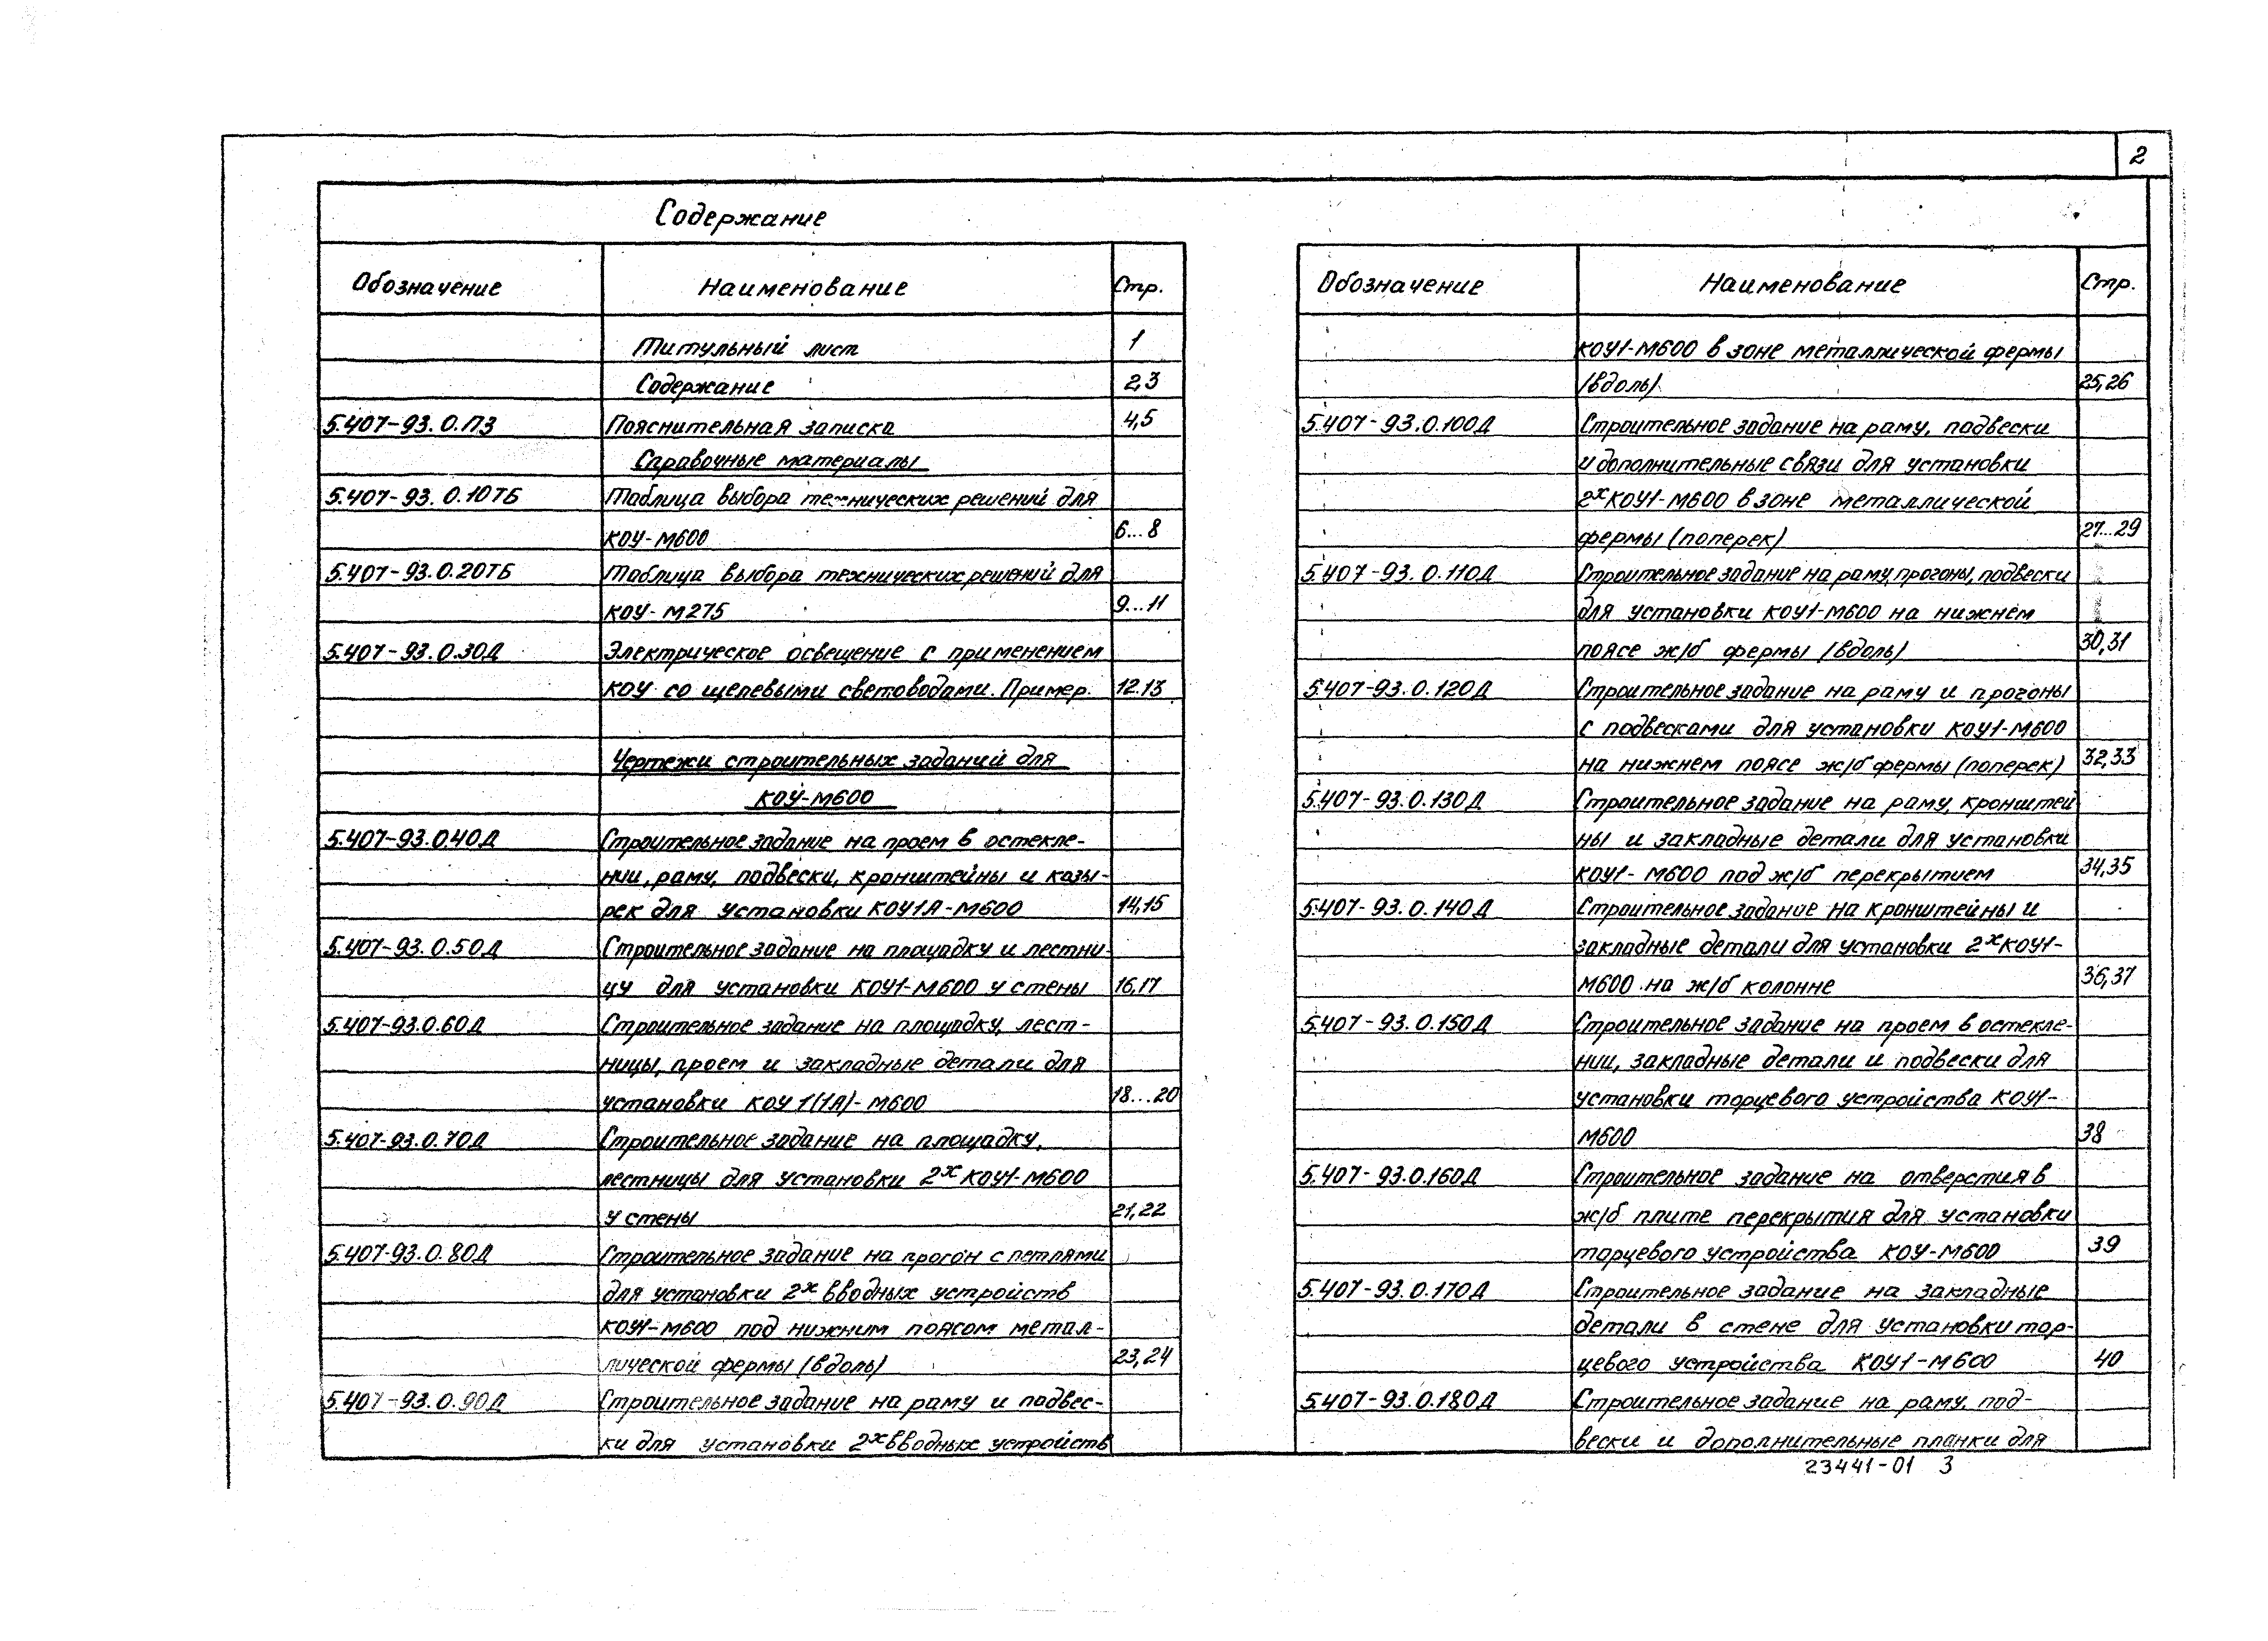 2
Содержание
Обозначение Наименование Стр.
Титульный лист 1
Содержание 2,3
5.407-93.0.ПЗ Пояснительная записка 4,5
Справочные материалы
5.407-93.0.10ТБ Таблица выбора технических решений для
КОУ-М600 6...8
5.407-93.0.20ТБ Таблица выбора технических решений для
КОУ-М275 9...11
5.407-93.0.30Д Электрическое освещение с применением
КОУ со щелевыми световодами. Пример. 12.13
Чертежи строительных заданий для
КОУ-М600
5.407-93.0.40Д Строительное задание на проем в остекле-
нии, раму, подвески, кронштейны и козы-
рек для установки КОУ1А-М600 14,15
5.407-93.0.50Д Строительное задание на площадку и лестни-
цу для установки КОУ1-М600 у стены 16,17
5.407-93.0.60Д Строительное задание на площадку, лест-
ницы, проем и закладные детали для
установки КОУ1(1А)-М600 18...20
5.407-93.0.70Д Строительное задание на площадку,
лестницы для установки 2х КОУ1-М600
у стены 21,22
5.407-93.0.80Д Строительное задание на прогон с петлями
для установки 2х вводных устройств
КОУ1-М600 под нижним поясом метал-
лической фермы (вдоль) 23,24
5.407-93.0.90Д Строительное задание на раму и подвес-
ки для установки 2х вводных устройств
Обозначение Наименование Стр.
КОУ1-М600 в зоне металлической фермы
(вдоль). 25,26
5.407-93.0.100Д Строительное задание на раму, подвески
и дополнительные связи для установки
2х КОУ1-М600 в зоне металлической
фермы (поперек) 27...29
5.407-93.0.110Д Строительное задание на раму, прогоны, подвески
для установки КОУ1-М600 на нижнем
поясе ж/б фермы (вдоль) 30,31
5.407-93.0.120Д Строительное задание на раму и прогоны
с подвесками для установки КОУ1-М600
на нижнем поясе ж/б фермы (поперек) 32,33
5.407-93.0.130Д Строительное задание на раму, кронштей
ны и закладные детали для установки
КОУ1-М600 под ж/б перекрытием 34,35
5.407-93.0.140Д Строительное задание на кронштейны и
закладные детали для установки 2х КОУ1-
М600 на ж/б колонне 36,37
5.407-93.0.150Д Строительное задание на проем в остекле-
нии, закладные детали и подвески для
установки торцевого устройства КОУ1-
М600 38
5.407-93.0.160Д Строительное задание на отверстия в
ж/б плите перекрытия для установки
торцевого устройства КОУ-М600 39
5.407-93.0.170Д Строительное задание на закладные
детали в стене для установки тор-
цевого устройства КОУ1-М600 40
5.407-93.0.180Д Строительное задание на раму, под-
вески и дополнительные планки для
23441-01 3